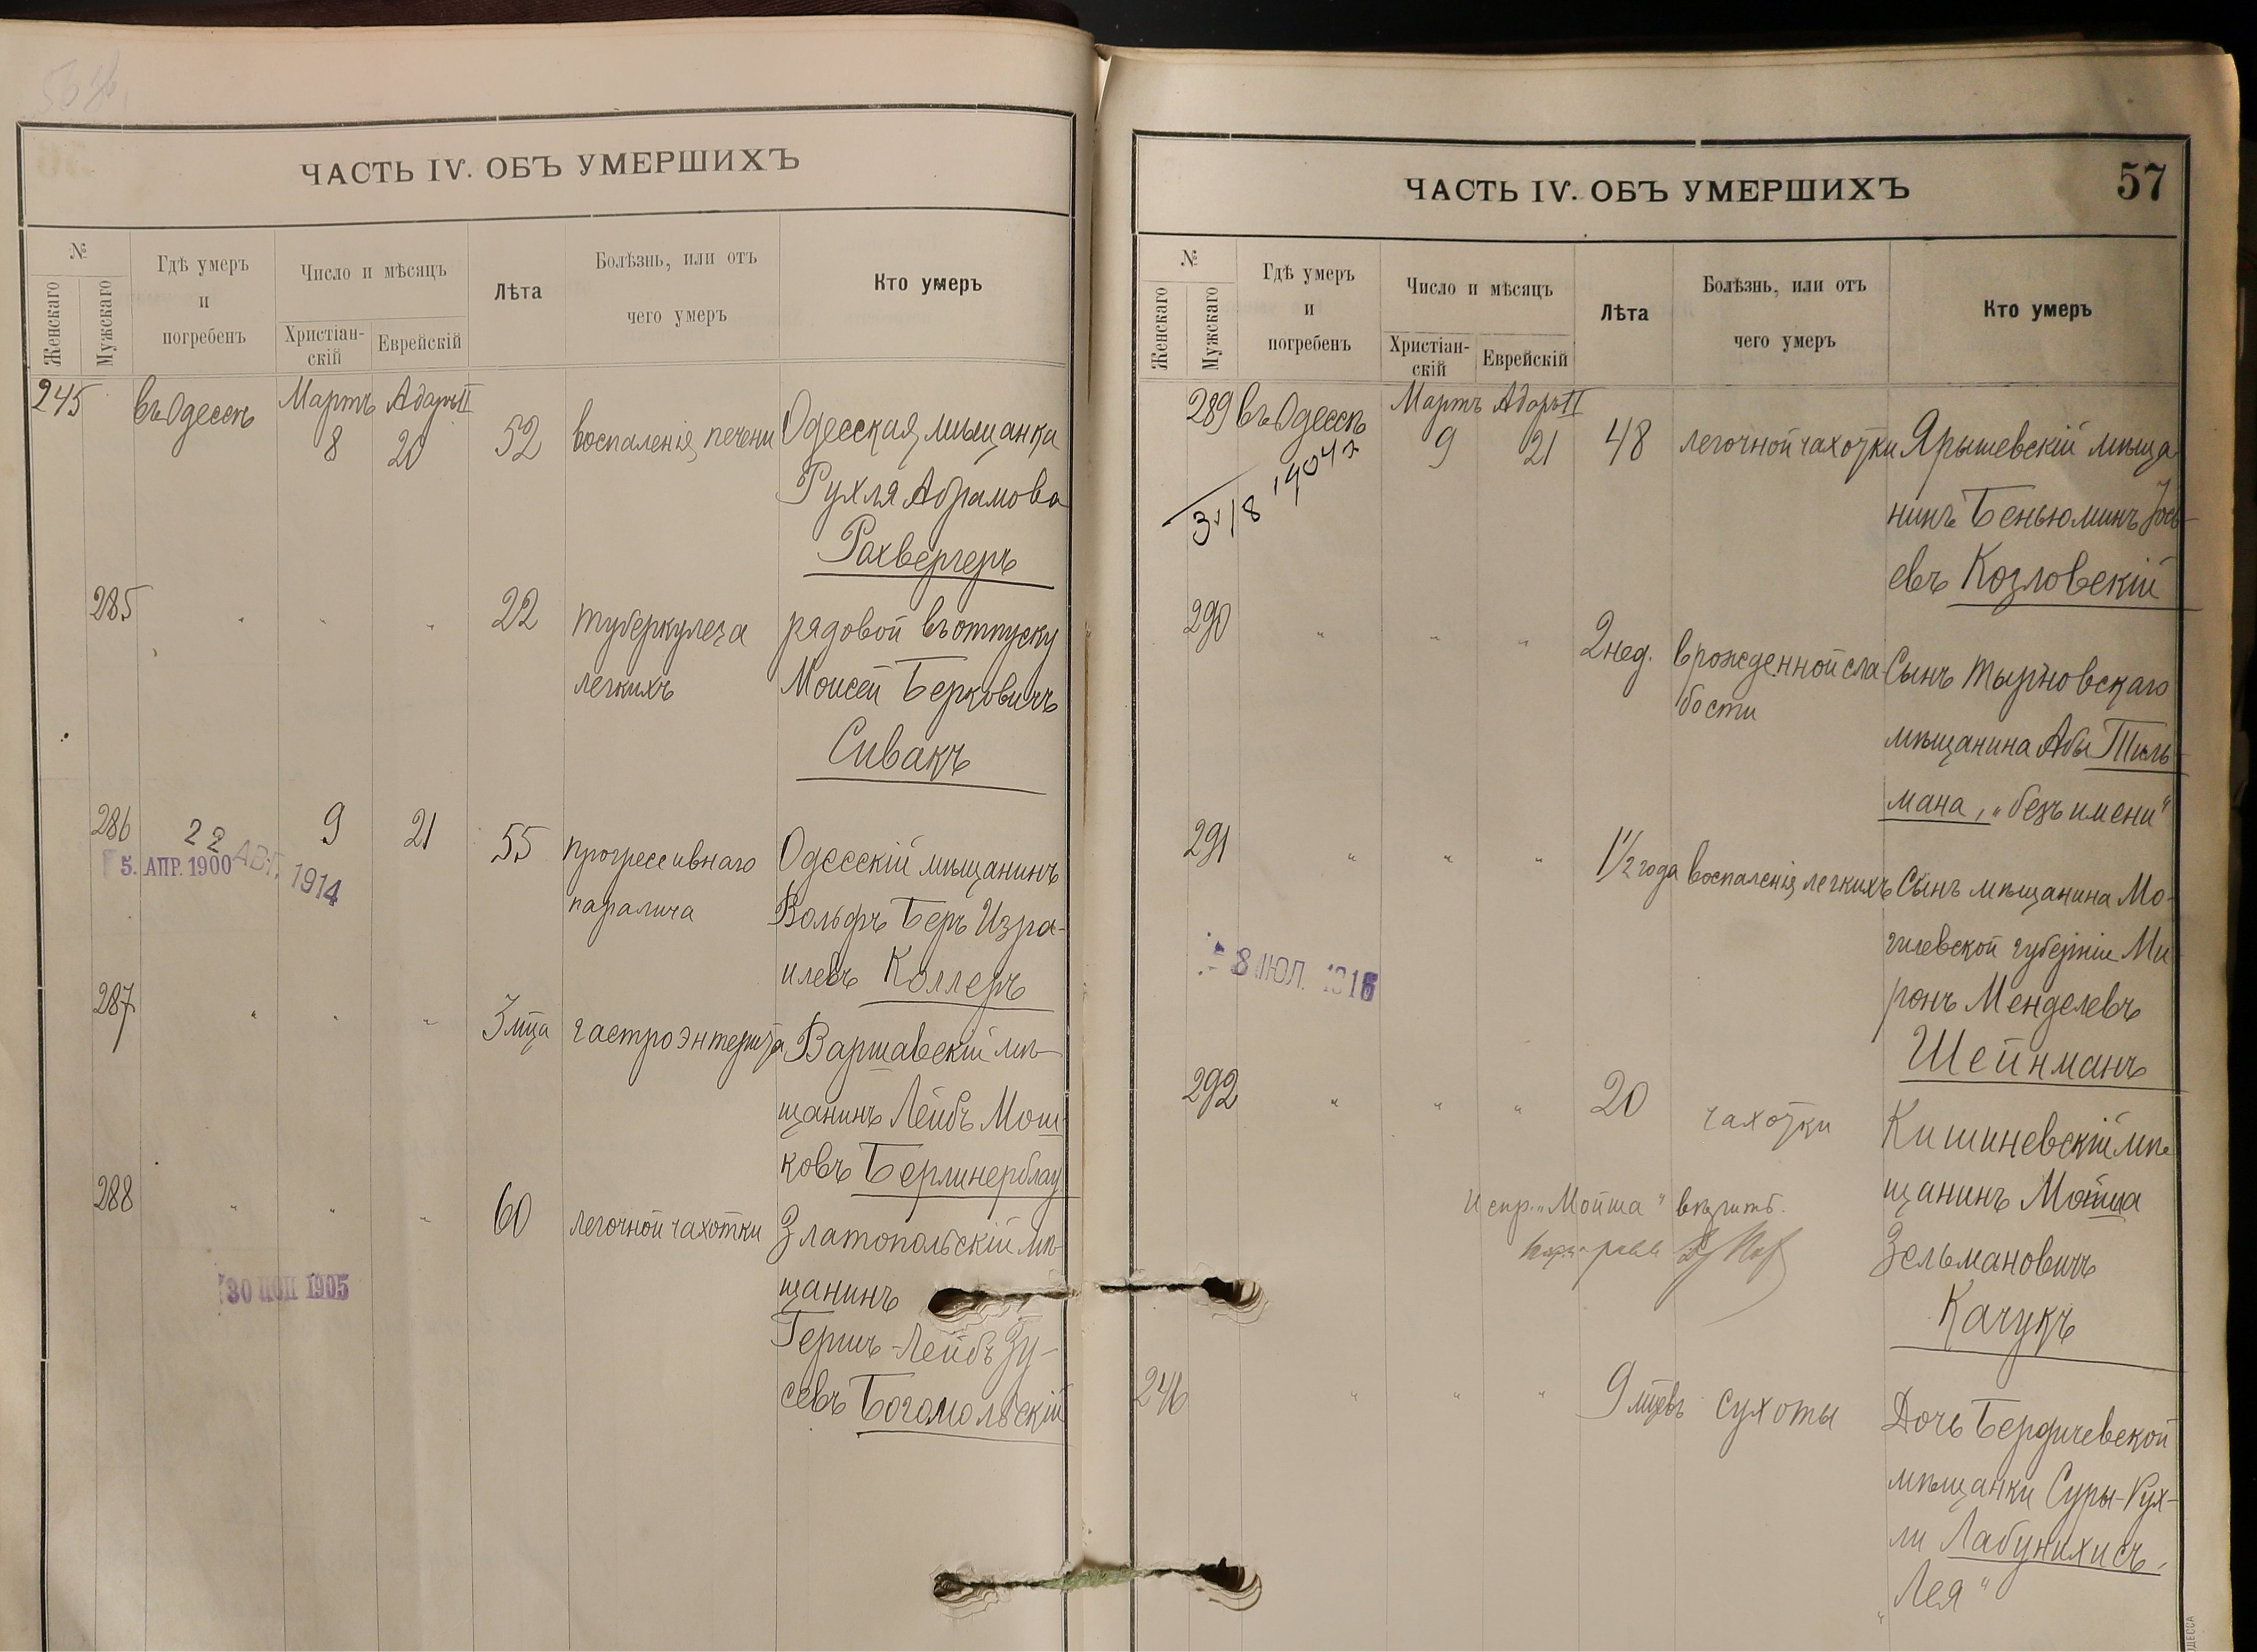 ЧАСТЬ IV. ОБЪ УМЕРШИХЪ
№
Женскаго
Мужскаго
Гдѣ умеръ
и
погребенъ
Число и мѣсяцъ
Христіан-
скій
Еврейскій
Лѣта
Болѣзнь, или отъ
чего умеръ
Кто умеръ
245 въ Одессѣ Мартъ Адаръ II
8 20 52 воспаленія печени Одесская мѣщанка
Рухля Абрамова
Рахвергеръ
285 " " " 22 туберкулеза рядовой въ отпуску
легкихъ Моисей Берковичъ
Сивакъ
286 9 21 55 прогрессивнаго Одесскій мѣщанинъ
22 АВГ. 1914
5. АПР. 1900
паралича Вольфъ Беръ Изра-
илевъ Коллеръ
287 " " " 3 мца гастроэнтерита Варшавскій мѣ-
щанинъ Лейбъ Мош
ковъ Берлинерблау
288 " " " 60 легочной чахотки Златопольскій мѣ-
щанинъ
30 1905
Гершъ-Лейбъ Зу-
севъ Богомольскій
ЧАСТЬ IV. ОБЪ УМЕРШИХЪ
57
№
Женскаго
Мужскаго
Гдѣ умеръ
и
погребенъ
Число и мѣсяцъ
Христіан-
скій
Еврейскій
Лѣта
Болѣзнь, или отъ
чего умеръ
Кто умеръ
289 въ Одессѣ Мартъ Адаръ II
9 21 48 легочной чахотки Ярышевскій мѣща
нинъ Беньюминъ Іось-
евъ Козловскій
290 " " " 2 нед. врожденной сла Сынъ Тырновскаго
бости
мѣщанина Абы Тиль-
мана, "безъ имени"
291 " " " 1 1/2 года воспаленія легкихъ Сынъ мѣщанина Мо-
гилевской губерніи Ми
8 ІЮЛ. 1916
ронъ Менделевъ
Шейнманъ
292 " " " 20 чахотки Кишиневскій мѣ
щанинъ Мойша
Испр. "Мойша" вѣрить.
Зельмановичъ
Качукъ
246 " " " 9 мцевъ сухоты Дочь Бердичевской
мѣщанки Суры-Рух-
ли Лабунихисъ,
"Лея"